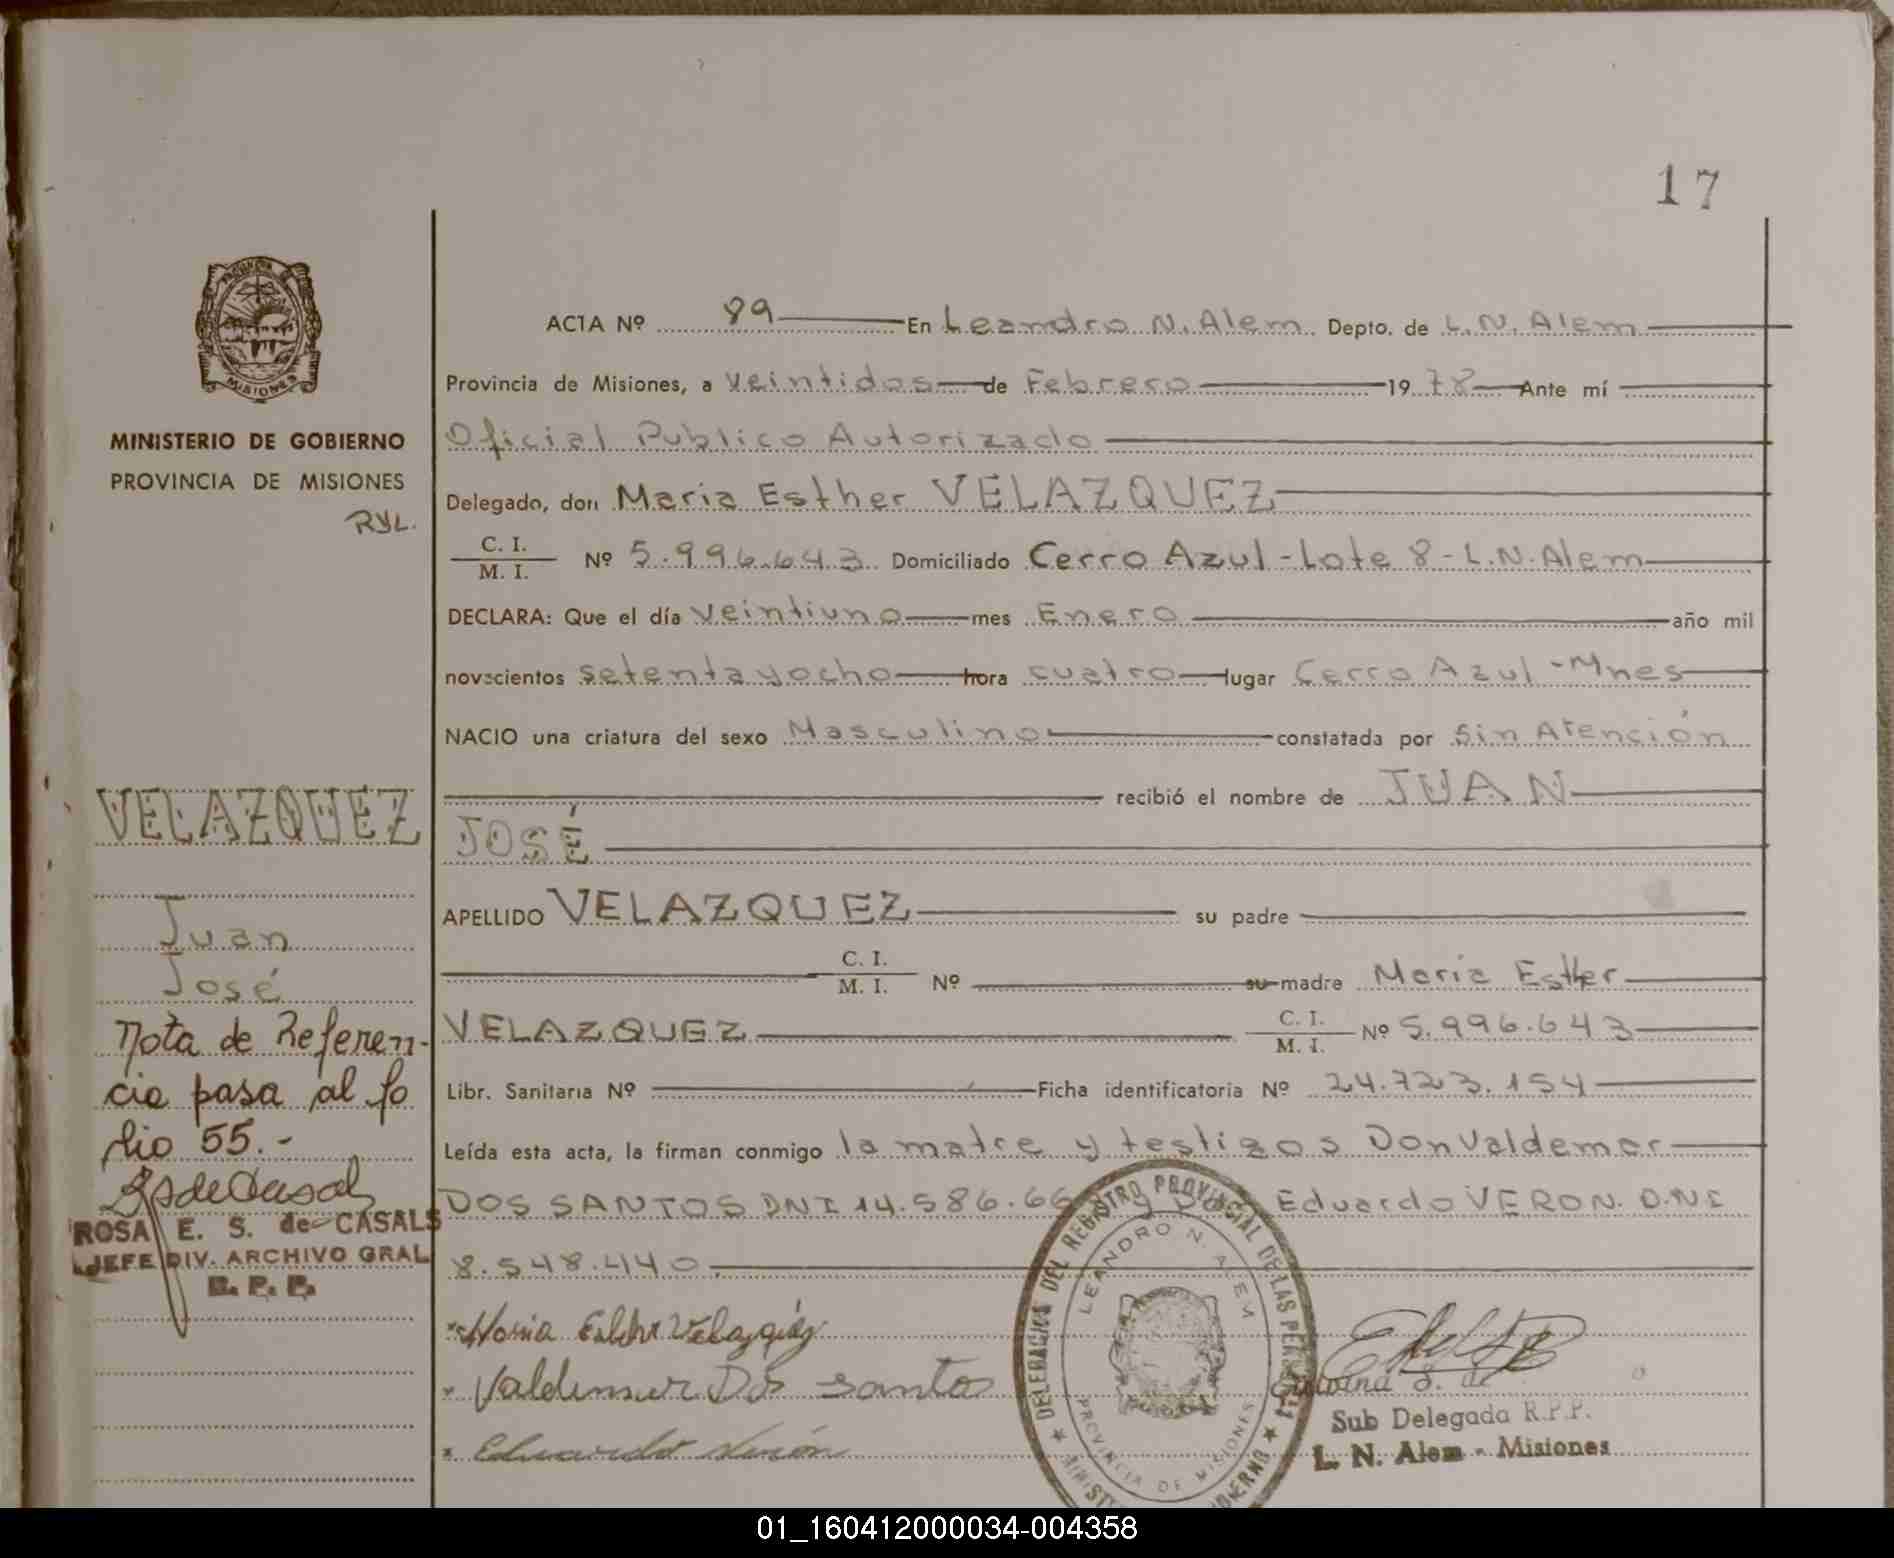 17
ACTA Nº 89 En Leandro N. Alem Depto. de L.N. Alem
Provincia de Misiones, a veintidos de Febrero 1978 Ante mí
Oficial Publico Autorizado
Delegado, don Maria Esther VELAZQUEZ
C. I.
M. I. Nº 5.996.643 Domiciliado Cerro Azul-Lote 8-L.N.Alem
DECLARA: Que el día veintiuno mes Enero año mil
novecientos setenta y ocho hora cuatro lugar Cerro Azul-Mnes
NACIO una criatura del sexo Masculino constatada por Sin Atención
recibió el nombre de JUAN
JOSÉ
APELLIDO VELAZQUEZ su padre
C. I.
M. I. Nº su madre Maria Esther
VELAZQUEZ C. I.
M. I. Nº 5.996.643
Libr. Sanitaria Nº Ficha identificatoria Nº 24.723.154
Leída esta acta, la firman conmigo la matre y testigos Don Valdemar
DOS SANTOS DNI 14.586.66 y Eduardo VERON. D.N.I
8.548.440.
Maria Esther Velazquéz
Valdemar Dos Santos
Eduardo Verón
PROVINCIA DE
MISIONES
MINISTERIO DE GOBIERNO
PROVINCIA DE MISIONES
RYL.
VELAZQUEZ
Juan
José
Nota de Referen-
cia pasa al fo
lio 55.-
ROSA E. S. de CASALS
JEFE DIV. ARCHIVO GRAL
R. P. P.
DELEGACION DEL REGISTRO PROVINCIAL DE LAS PERSONAS
LEANDRO N. ALEM
PROVINCIA DE MISIONES
Sub Delegada R.P.P.
L. N. Alem - Misiones
01_160412000034-004358